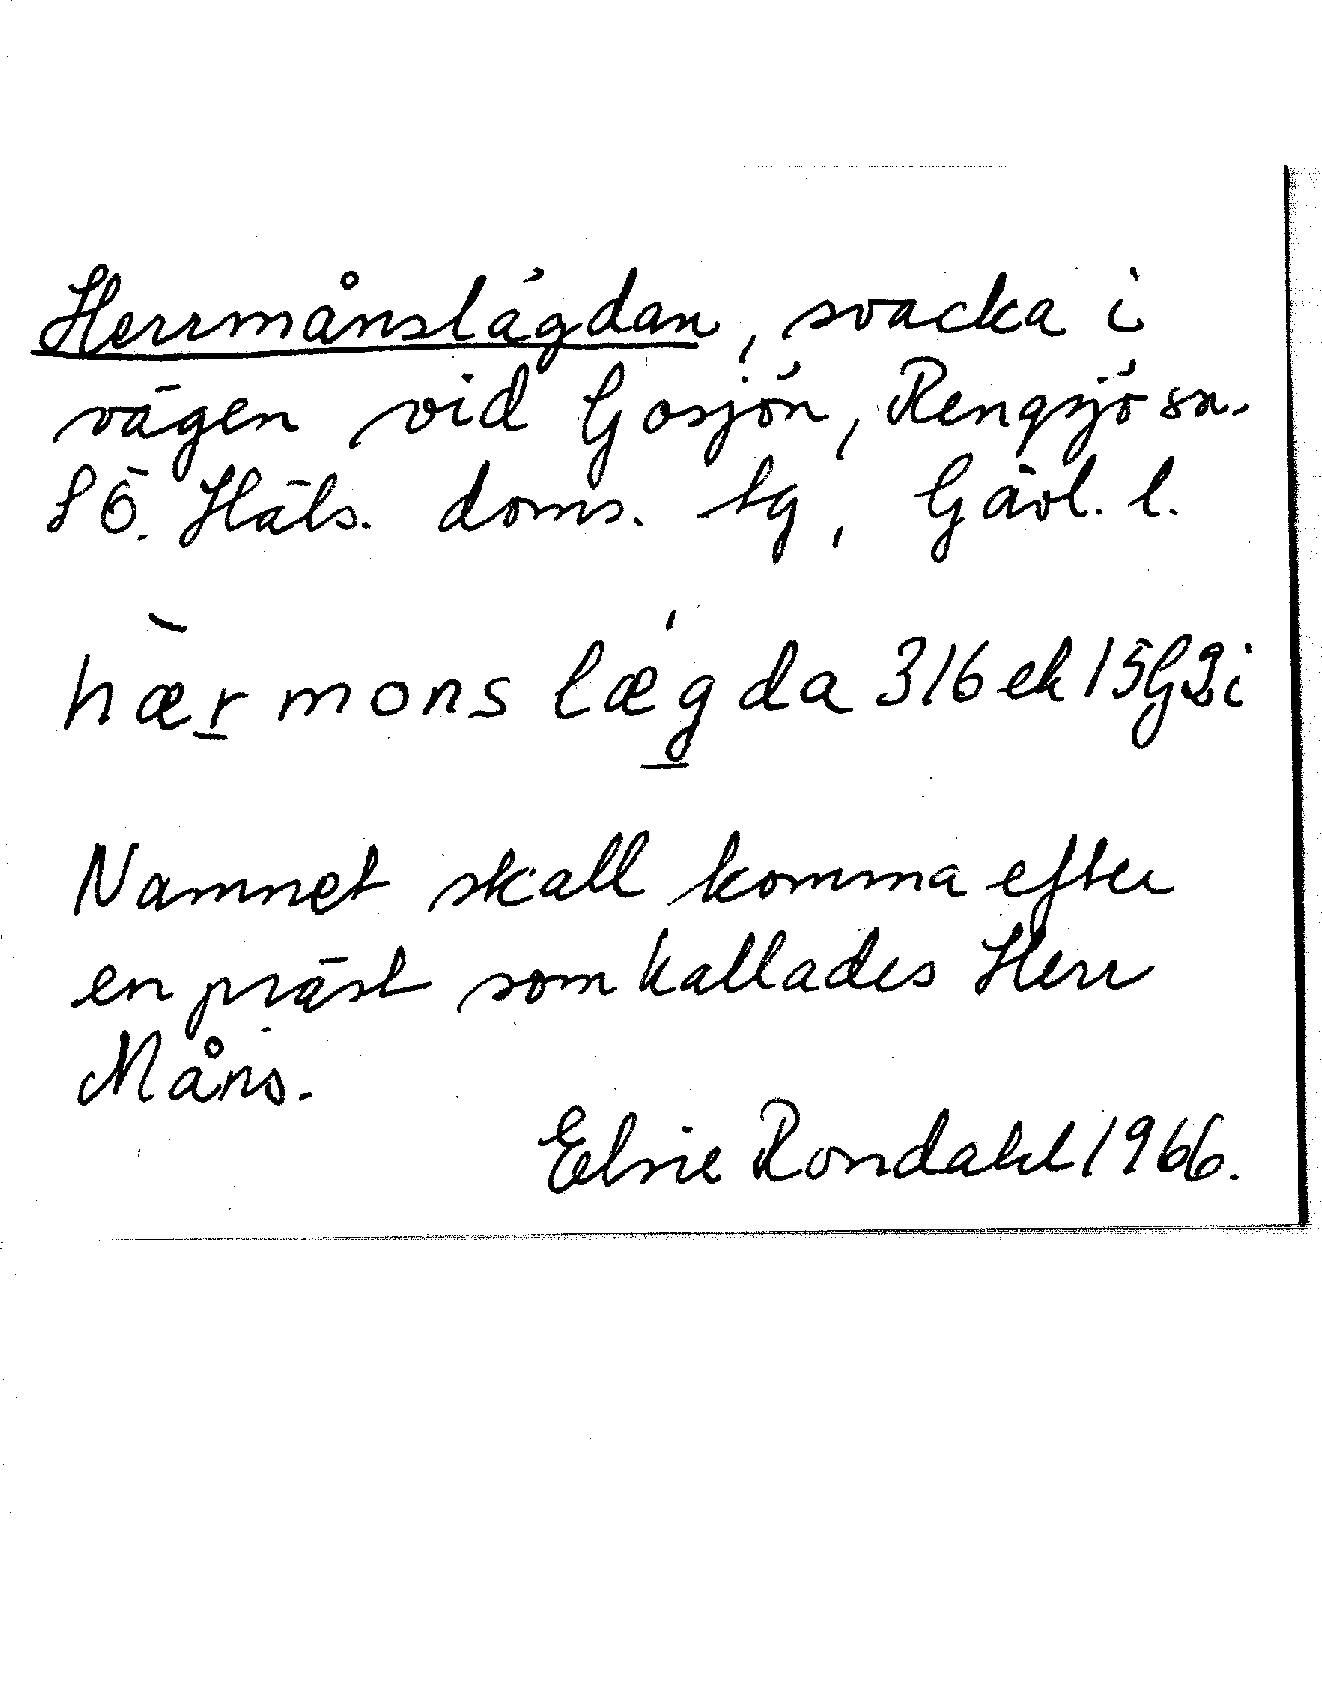 Herrmånslägdan, svacka i
vägen vid Gosjön, Rengsjö sn.
SÖ. Häls. doms. tg, Gävl. l.
hær mons lægda 316 ek 15G2i
Namnet skall komma efter
en präst som kallades Herr
Måns.
Elsie Rondahl 1966.